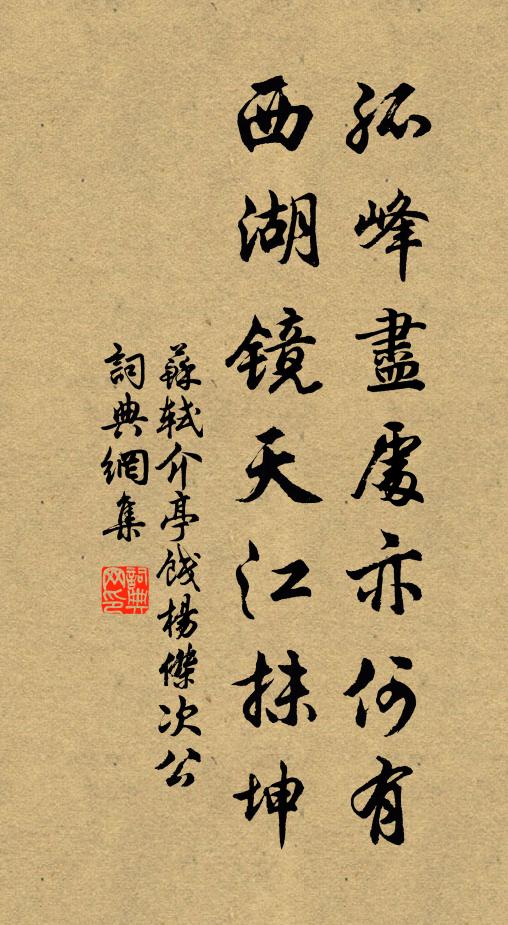 孤峰盡處亦何有
西湖镜天江抹坤
蘇軾介亭餞楊傑次公
詞典網集
詞典网印